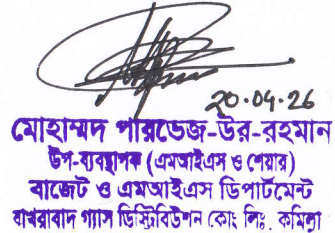 ২০.০৪.২৬
মোহাম্মদ পারভেজ-উর-রহমান
উপ-ব্যবস্থাপক (এমআইএস ও শেয়ার)
বাজেট ও এমআইএস ডিপার্টমেন্ট
বাখরাবাদ গ্যাস ডিস্ট্রিবিউশন কোং লিঃ, কুমিল্লা